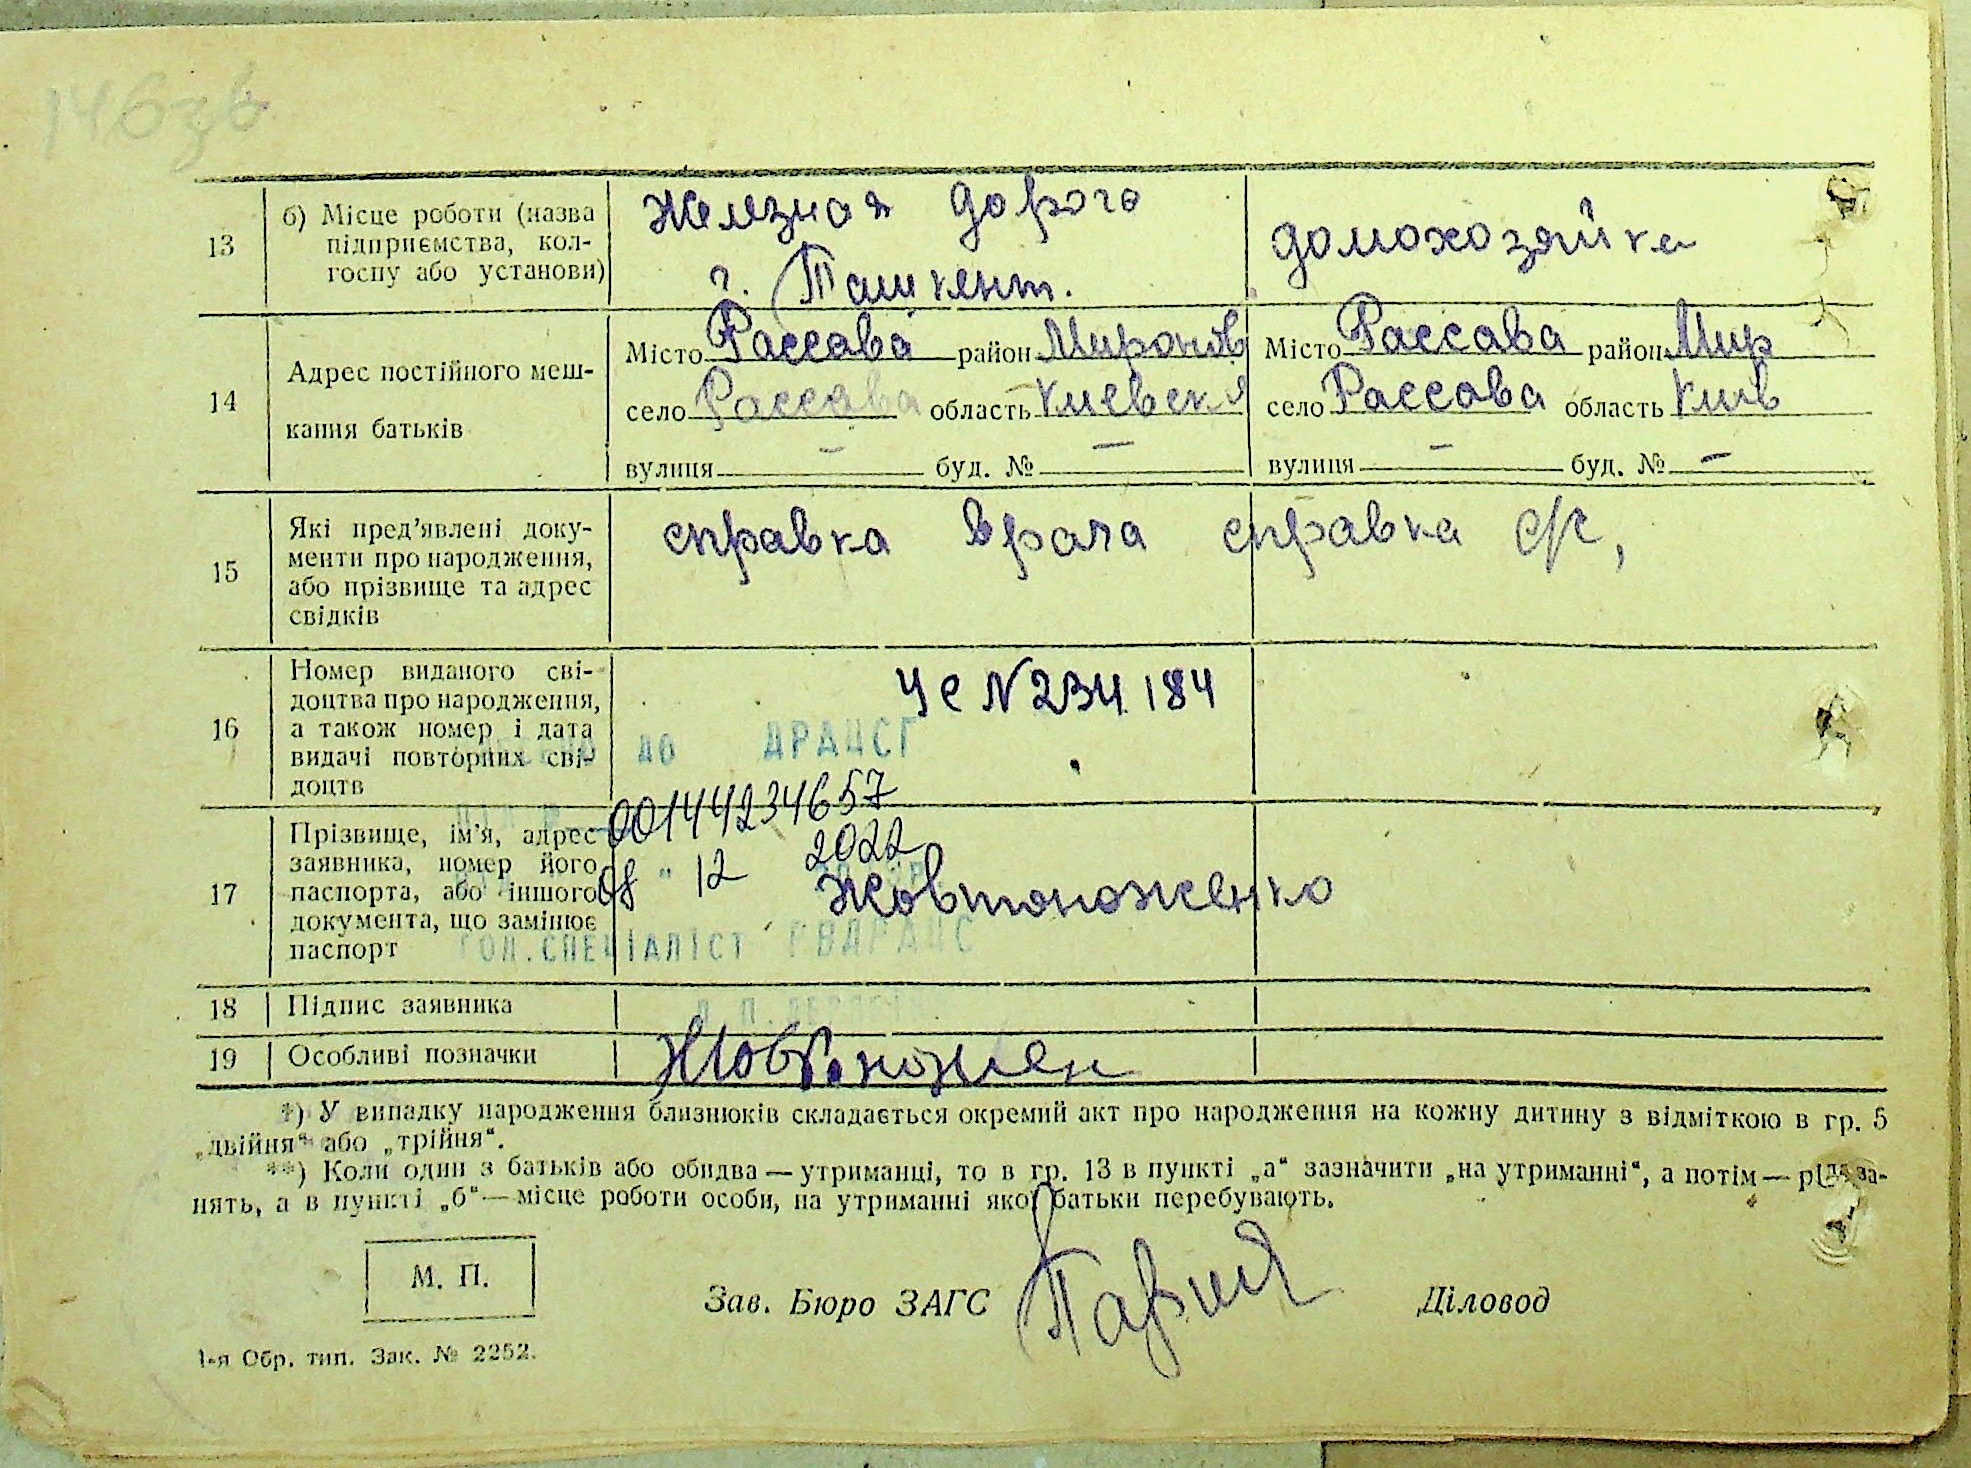 146зв
13
б) Місце роботи (назва
підприємства, кол-
госпу або установи)
Железная дорога
г. Ташкент.
домохозяйка
14
Адрес постійного меш-
кання батьків
Місто Рассава район Миронов
село Рассава область Киевск
вулиця – буд. № –
Місто Рассава район Мир
село Рассава область Киів
вулиця – буд. № –
15
Які пред’явлені доку-
менти про народження,
або прізвище та адрес
свідків
справка врача справка с/с,
16
Номер виданого сві-
доцтва про народження,
а також номер і дата
видачі повторних сві-
доцтв
ЧС N 234184
до ДРАЦСГ
00144234657
17
Прізвище, ім’я, адрес
заявника, номер його
паспорта, або іншого
документа, що замінює
паспорт
08 " 12 2022
Жовтоноженко
ГОЛ.СПЕЦІАЛІСТ
18 Підпис заявника
19 Особливі позначки
Жовтоножен
*) У випадку народження близнюків складається окремий акт про народження на кожну дитину з відміткою в гр. 5
„двійня“ або „трійня“.
**) Коли один з батьків або обидва — утриманці, то в гр. 13 в пункті „а“ зазначити „на утриманні“, а потім — рід за-
нять, а в пункті „б“ — місце роботи особи, на утриманні якої батьки перебувають.
М. П.
Зав. Бюро ЗАГС
Діловод
1-я Обр. тип. Зак. № 2252.